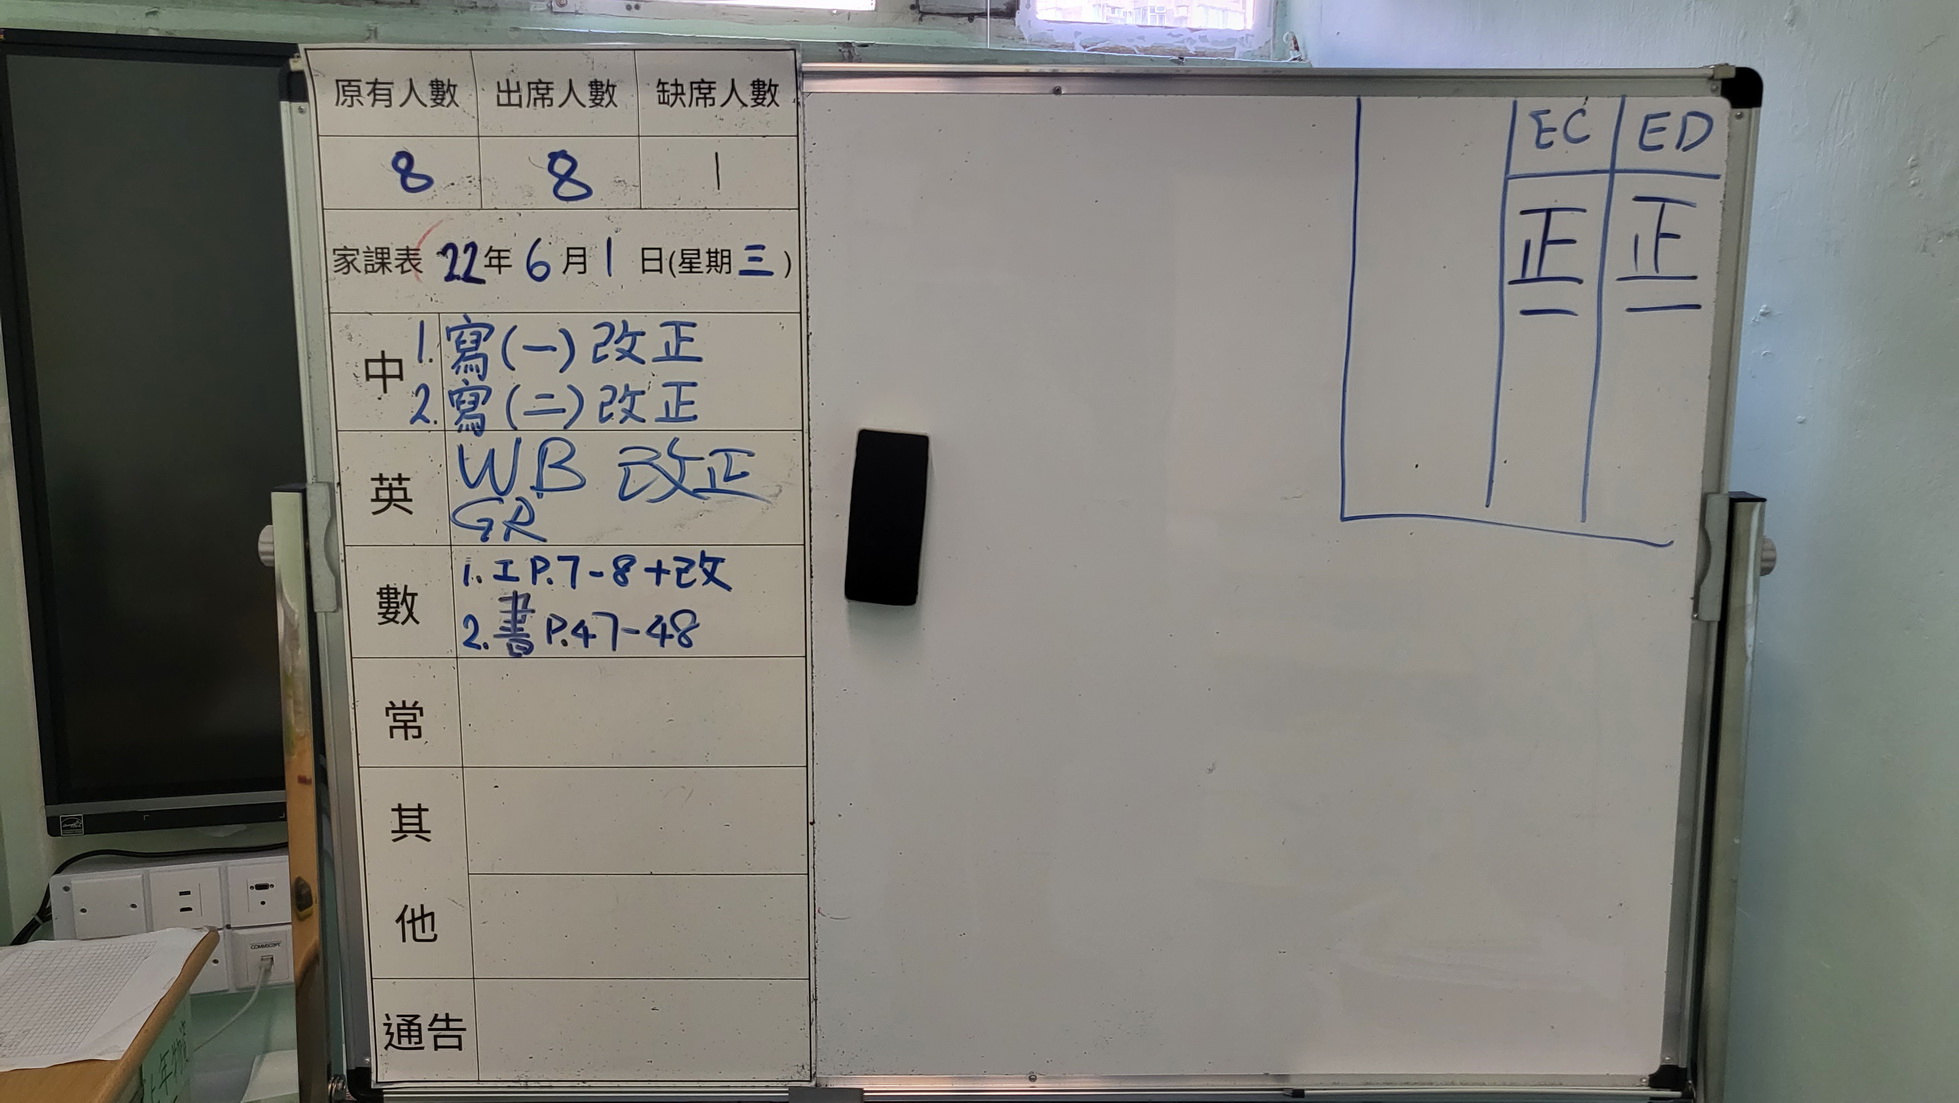 原有人數 出席人數 缺席人數
8 8 1
家課表 22年6月1日(星期三)
中
1. 寫(一)改正
2. 寫(二)改正
英
WB 改正
GR
數
1. 工P.7-8+改
2. 書P.47-48
常
其他
通告
EC ED
正 正
二 二
COMMSCOPE